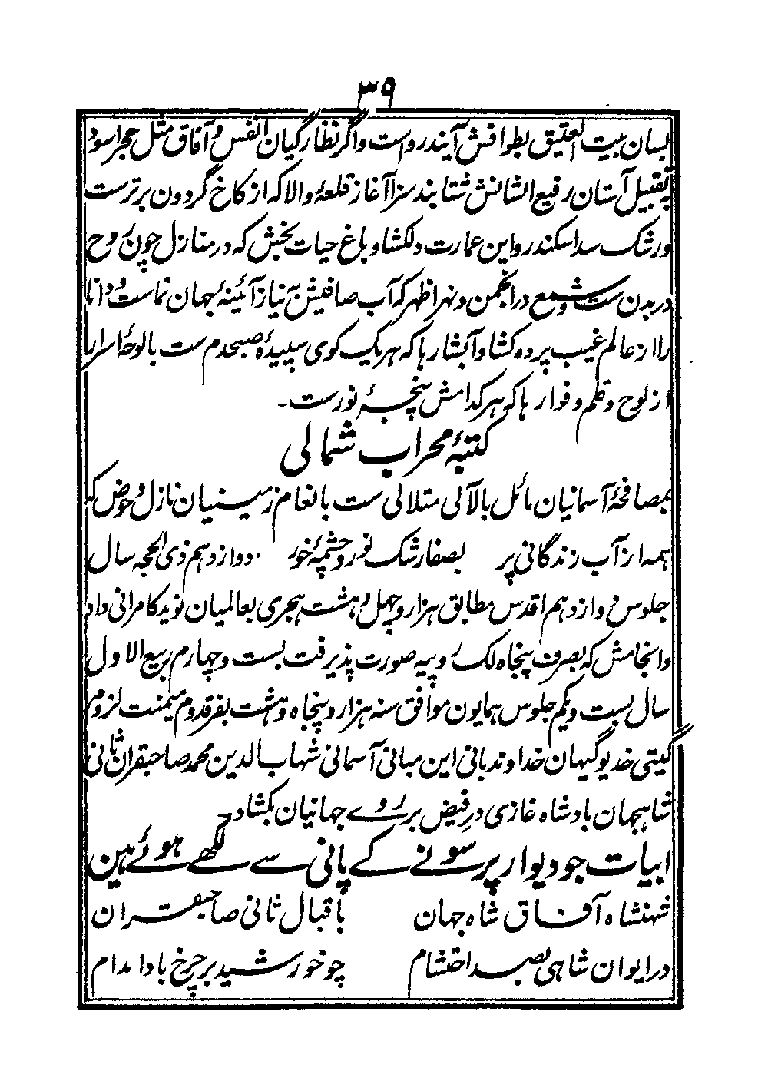 ۳۹
بسان بیت العتیق بطوافش آیند رواست و اگر نظارگیان انفس و آفاق مثل حجر اسود
بتقبیل آستان رفیع الشانش شتابند سزا آغاز قلعۂ والا کہ از کاخ گردون برترست
ورشک سد اسکندر و این عمارت دلکشا و باغ حیات بخش کہ در منازل چون روح
در بدن ست و شمع در انجمن و نہر اطہر کہ آب صافیش بے نیاز آئینۂ جہان نماست و دانا
را از عالم غیب پردہ کشا و آبشارہا کہ ہریک گوی سپیدۂ صبحدم ست یا لوحۂ اسرار
از لوح و قلم و فوارہا کہ ہر کدامش پنجۂ نورست۔
کتبۂ محراب شمالی
بمصافحۂ آسمانیان مائل یا لآلی متلالی ست بانعام زمینیان نازل و حوض کہ
ہمہ از آب زندگانی پر بصفا رشک نور و چشمۂ خور دوازدہم ذی الحجہ سال
جلوس دوازدہم اقدس مطابق ہزار و چہل و ہشت ہجری بعالمیان نوید کامرانی داد
و انجامش کہ بصرف پنجاہ لک روپیہ صورت پذیرفت بست و چہارم ربیع الاول
سال بست و یکم جلوس ہمایون موافق سنہ ہزار و پنجاہ و ہشت بفر قدوم میمنت لزوم
گیتی خدیو گیہان خداوند بانی این مبانی آسمانی شہاب الدین محمد صاحبقران ثانی
شاہجہان بادشاہ غازی در فیض بر روے جہانیان بکشاد۔
ابیات جو دیوار پر سونے کے پانی سے لکھے ہوئے ہین
شہنشاہ آفاق شاہ جہان باقبال ثانی صاحبقران
در ایوان شاہی بصد احتشام چو خورشید بر چرخ بادا مدام